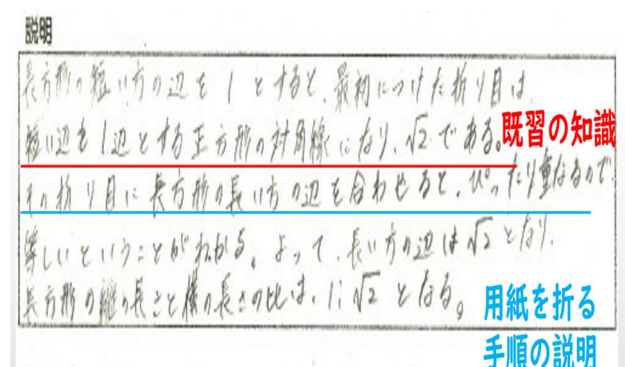 説明
長方形の短い方の辺を1とすると、最初につけた折り目は、
短い辺を1辺とする正方形の対角線になり、√2である。
既習の知識
その折り目に長方形の長い方の辺を合わせると、ぴったり重なるので
等しいということがわかる。よって、長い方の辺は√2となり、
長方形の縦の長さと横の長さの比は、1:√2となる。
用紙を折る
手順の説明